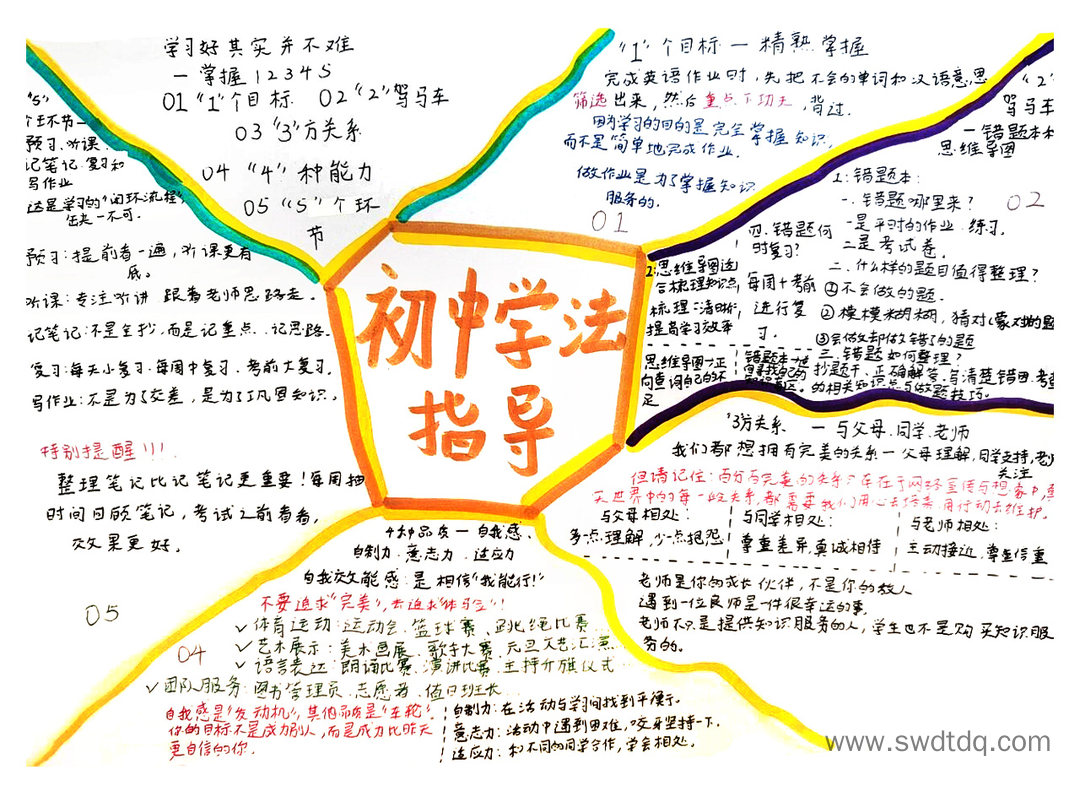 初中学法
指导
学习好其实并不难
一掌握12345
01 "1"个目标 02 "2"驾马车
03 "3"方关系
04 "4"种能力
05 "5"个环
节
"1"个目标一精熟掌握
完成英语作业时,先把不会的单词和汉语意思
筛选出来,然后重点下功夫,背过.
因为学习的目的是完全掌握知识,
而不是简单地完成作业.
做作业是为了掌握知识
服务的.
01
"2"
驾马车
一错题本和
思维导图
02
1.错题本:
一.错题哪里来?
一是平时的作业、练习.
二是考试卷.
二.什么样的题目值得整理?
①不会做的题.
②模模糊糊,猜对(蒙对的题
③会做却做错了的题
三.错题如何整理?
抄题干、正确解答,写清楚错因,考查
的相关知识点与做题技巧。
四.错题何
时复习?
每周+考前
进行复
习.
2.思维导图适
合梳理知识点,
梳理清晰,
提高学习效率
思维导图正
向查询自己的不
足
"3"方关系 一与父母.同学.老师
我们都想拥有完美的关系一父母理解,同学支持,老师
关注
但请记住:百分百完美的关系只存在于网络宣传与想象中,
实世界中的每一段关系,都需要我们用心去经营,用行动去维护。
与父母相处:
多一点理解,少一点抱怨
与同学相处:
尊重差异,真诚相待
与老师相处:
主动接近,尊重信重
老师是你的成长伙伴,不是你的敌人
遇到一位良师是一件很幸运的事.
老师不只是提供知识服务的人,学生也不是购买知识服
务的.
4种品质一自我感.
自制力.意志力.适应力
自我效能感:是相信"我能行!"
不要追求"完美",去追求"体验"!
✓体育运动:运动会.篮球赛、跳绳比赛...
✓艺术展示:美术画展、歌手大赛、元旦文艺汇演...
✓语言表达:朗诵比赛.演讲比赛.主持升旗仪式...
✓团队服务:图书管理员.志愿者、值日班长...
04
自我感是"发动机",其他品质是"车轮".
你的目标不是成为别人,而是成为比昨天
更自信的你.
自制力:在活动与学习间找到平衡.
意志力:活动中遇到困难,咬牙坚持一下.
适应力:和不同的同学合作,学会相处.
"5"
个环节一
预习.听课、
记笔记.复习和
写作业
这是学习的"闭环流程"
缺一不可.
预习:提前看一遍,听课更有
底。
听课:专注听讲 跟着老师思路走.
记笔记:不是全抄,而是记重点.记思路.
复习:每天小复习.每周中复习.考前大复习.
写作业:不是为了交差,是为了巩固知识.
特别提醒!!!
整理笔记比记笔记更重要!每周抽
时间回顾笔记,考试之前看看,
效果更好.
05
www.swdtdq.com